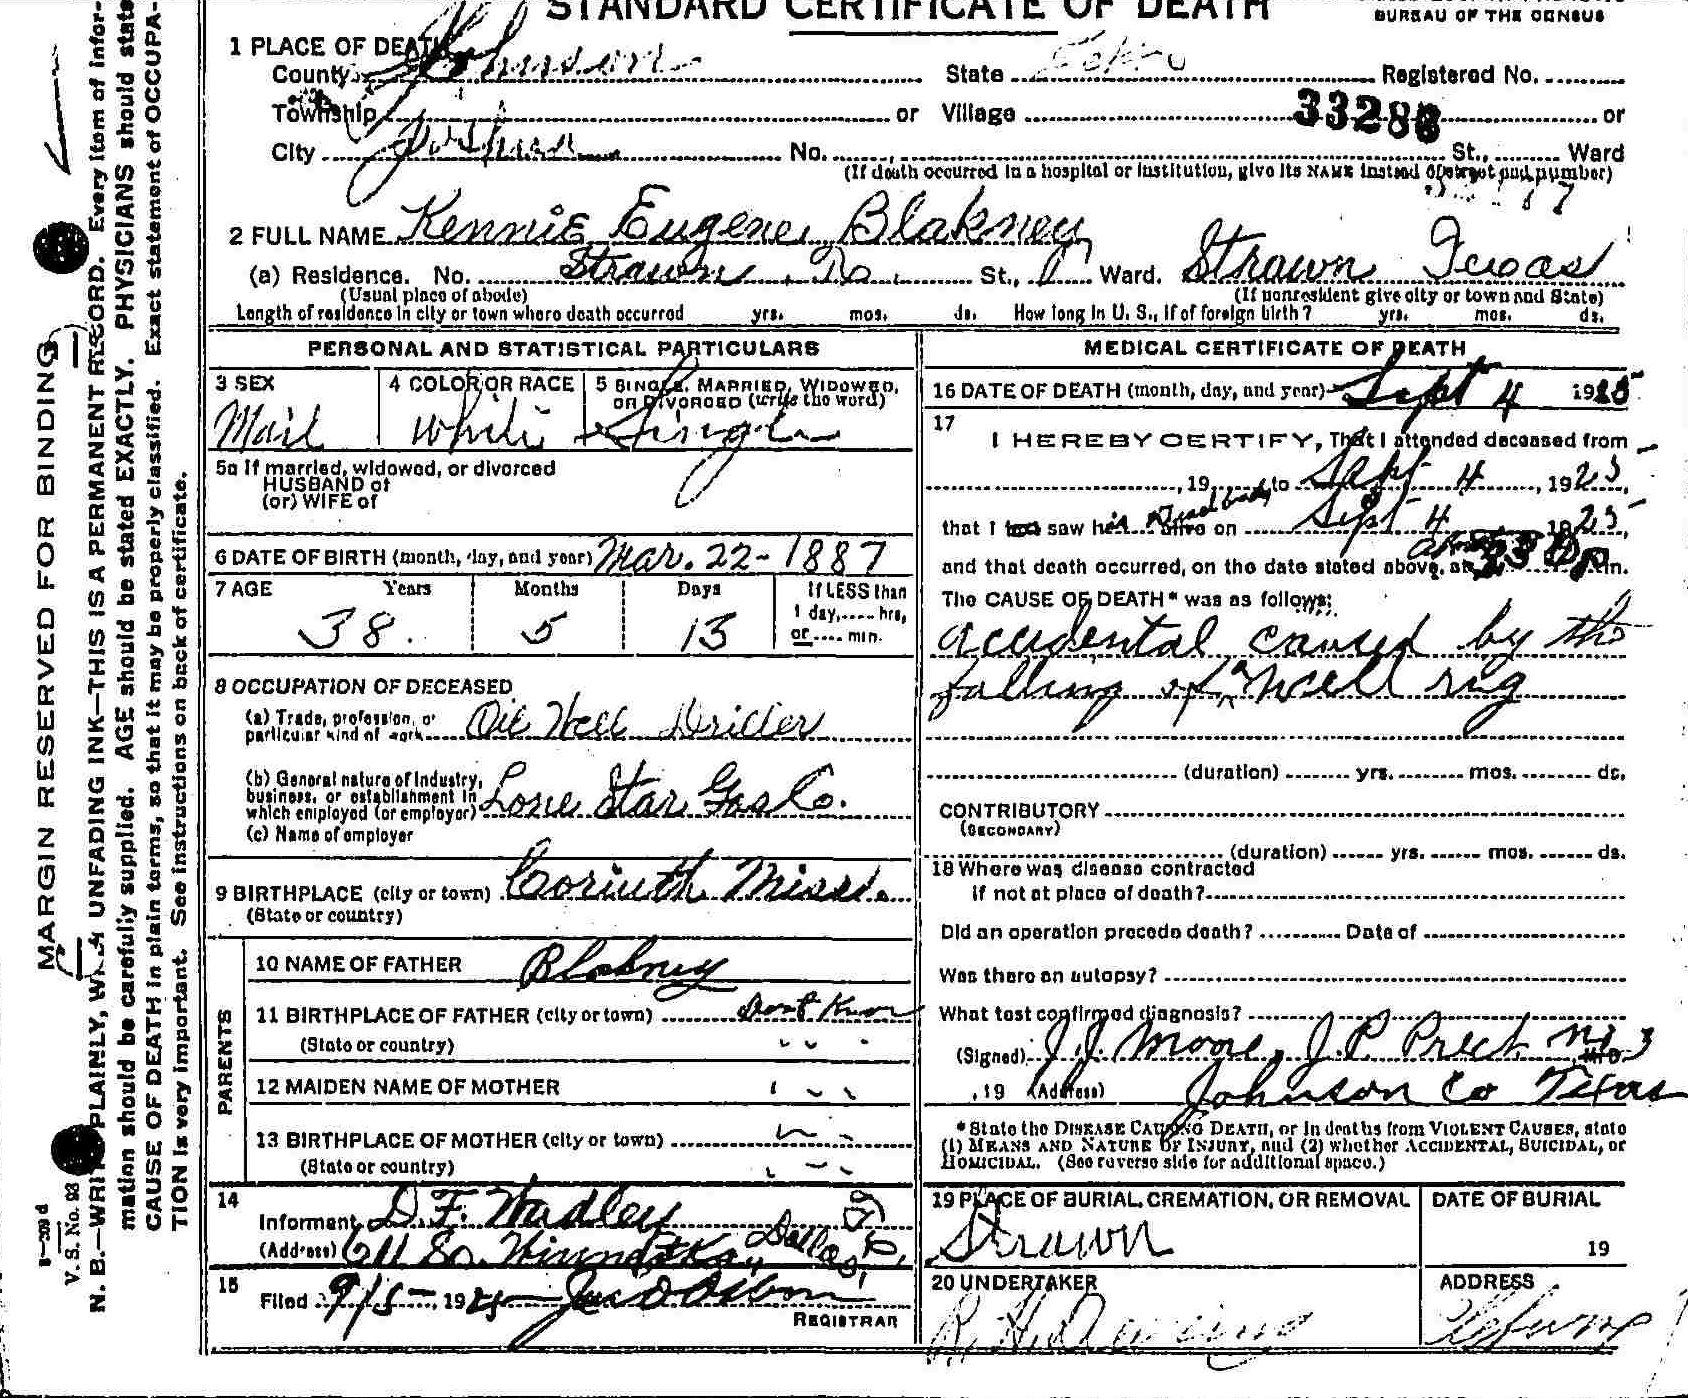 STANDARD CERTIFICATE OF DEATH
BUREAU OF THE CENSUS
1 PLACE OF DEATH
County Johnson State Registered No.
Township or Village 33286 or
City Joshua No. St., Ward
(If death occurred in a hospital or institution, give its NAME instead of street and number)
2 FULL NAME Kennie Eugene Blakney
(a) Residence. No. Strawn, Tx. St., Ward. Strawn Texas
(Usual place of abode) (If nonresident give city or town and State)
Length of residence in city or town where death occurred yrs. mos. ds. How long in U. S., if of foreign birth? yrs. mos. ds.
PERSONAL AND STATISTICAL PARTICULARS
3 SEX 4 COLOR OR RACE 5 SINGLE, MARRIED, WIDOWED, OR DIVORCED (write the word)
Mail White Single
5a If married, widowed, or divorced
HUSBAND of
(or) WIFE of
6 DATE OF BIRTH (month, day, and year) Mar. 22 - 1887
7 AGE Years Months Days If LESS than
1 day, .... hrs,
or .... min.
38. 5 13
8 OCCUPATION OF DECEASED
(a) Trade, profession, or
particular kind of work Oil Well Driller
(b) General nature of Industry,
business, or establishment in
which employed (or employer) Lone Star Gas Co.
(c) Name of employer
9 BIRTHPLACE (city or town) Corinth Miss.
(State or country)
PARENTS
10 NAME OF FATHER Blakney
11 BIRTHPLACE OF FATHER (city or town) Dont Know
(State or country) " "
12 MAIDEN NAME OF MOTHER
13 BIRTHPLACE OF MOTHER (city or town)
(State or country)
14
Informant D.F. Wadley
(Address) 611 So. Dallas,
15
Filed 9/5-, 1925
REGISTRAR
MEDICAL CERTIFICATE OF DEATH
16 DATE OF DEATH (month, day, and year) Sept 4 1925
17
I HEREBY CERTIFY, That I attended deceased from
, 19 to Sept 4, 1925,
that I saw his dead body alive on Sept 4 1925,
and that death occurred, on the date stated above, at m.
The CAUSE OF DEATH* was as follows:
accidental caused by the
falling of a well rig
(duration) yrs. mos. ds.
CONTRIBUTORY
(SECONDARY)
(duration) yrs. mos. ds.
18 Where was disease contracted
if not at place of death?
Did an operation precede death? Date of
Was there an autopsy?
What test confirmed diagnosis?
(Signed) J. J. Moore, J.P. Prect. No 3
, 19 (Address) Johnson Co Texas
* State the DISEASE CAUSING DEATH, or in deaths from VIOLENT CAUSES, state
(1) MEANS AND NATURE OF INJURY, and (2) whether ACCIDENTAL, SUICIDAL, or
HOMICIDAL. (See reverse side for additional space.)
19 PLACE OF BURIAL, CREMATION, OR REMOVAL DATE OF BURIAL
Strawn 19
20 UNDERTAKER ADDRESS
MARGIN RESERVED FOR BINDING
N. B.—WRITE PLAINLY, WITH UNFADING INK—THIS IS A PERMANENT RECORD. Every item of infor-
mation should be carefully supplied. AGE should be stated EXACTLY. PHYSICIANS should state
CAUSE OF DEATH in plain terms, so that it may be properly classified. Exact statement of OCCUPA-
TION is very important. See instructions on back of certificate.
V. S. No. 93